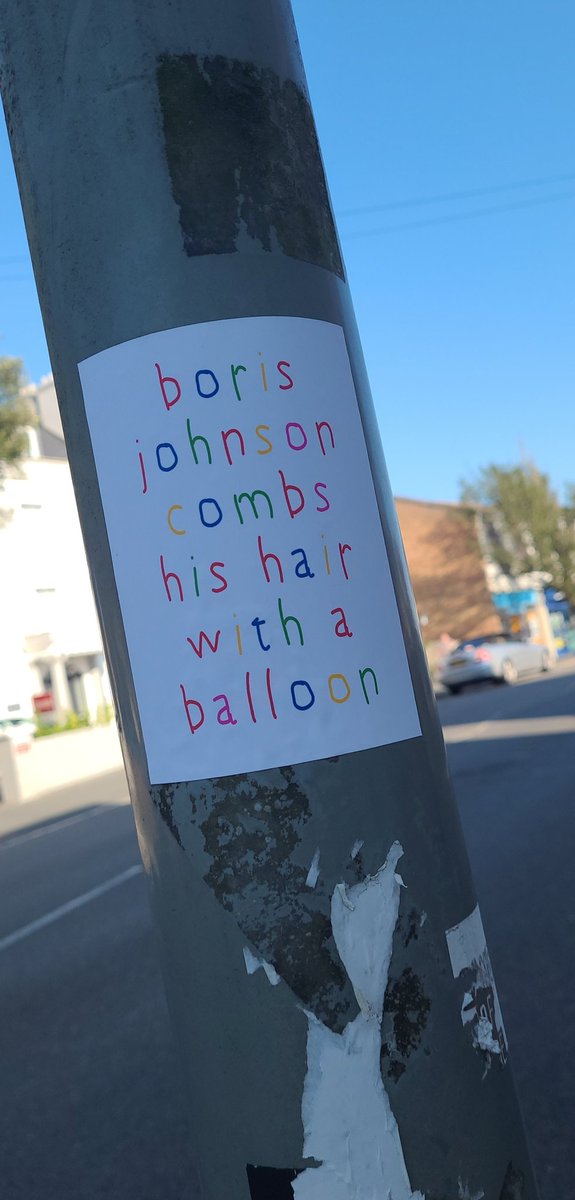 boris
johnson
combs
his hair
with a
balloon